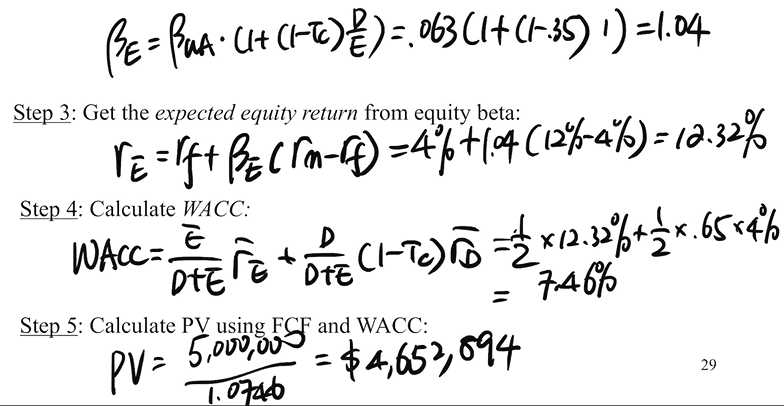 β_E = β_UA · (1 + (1-T_C) D/E) = .063 (1 + (1-.35) 1) = 1.04
Step 3: Get the expected equity return from equity beta:
r_E = r_f + β_E (r_m - r_f) = 4% + 1.04 (12% - 4%) = 12.32%
Step 4: Calculate WACC:
WACC = E/(D+E) r_E + D/(D+E) (1-T_C) r_D = 1/2 × 12.32% + 1/2 × .65 × 4%
= 7.46%
Step 5: Calculate PV using FCF and WACC:
PV = 5,000,000/1.0746 = $4,652,894
29